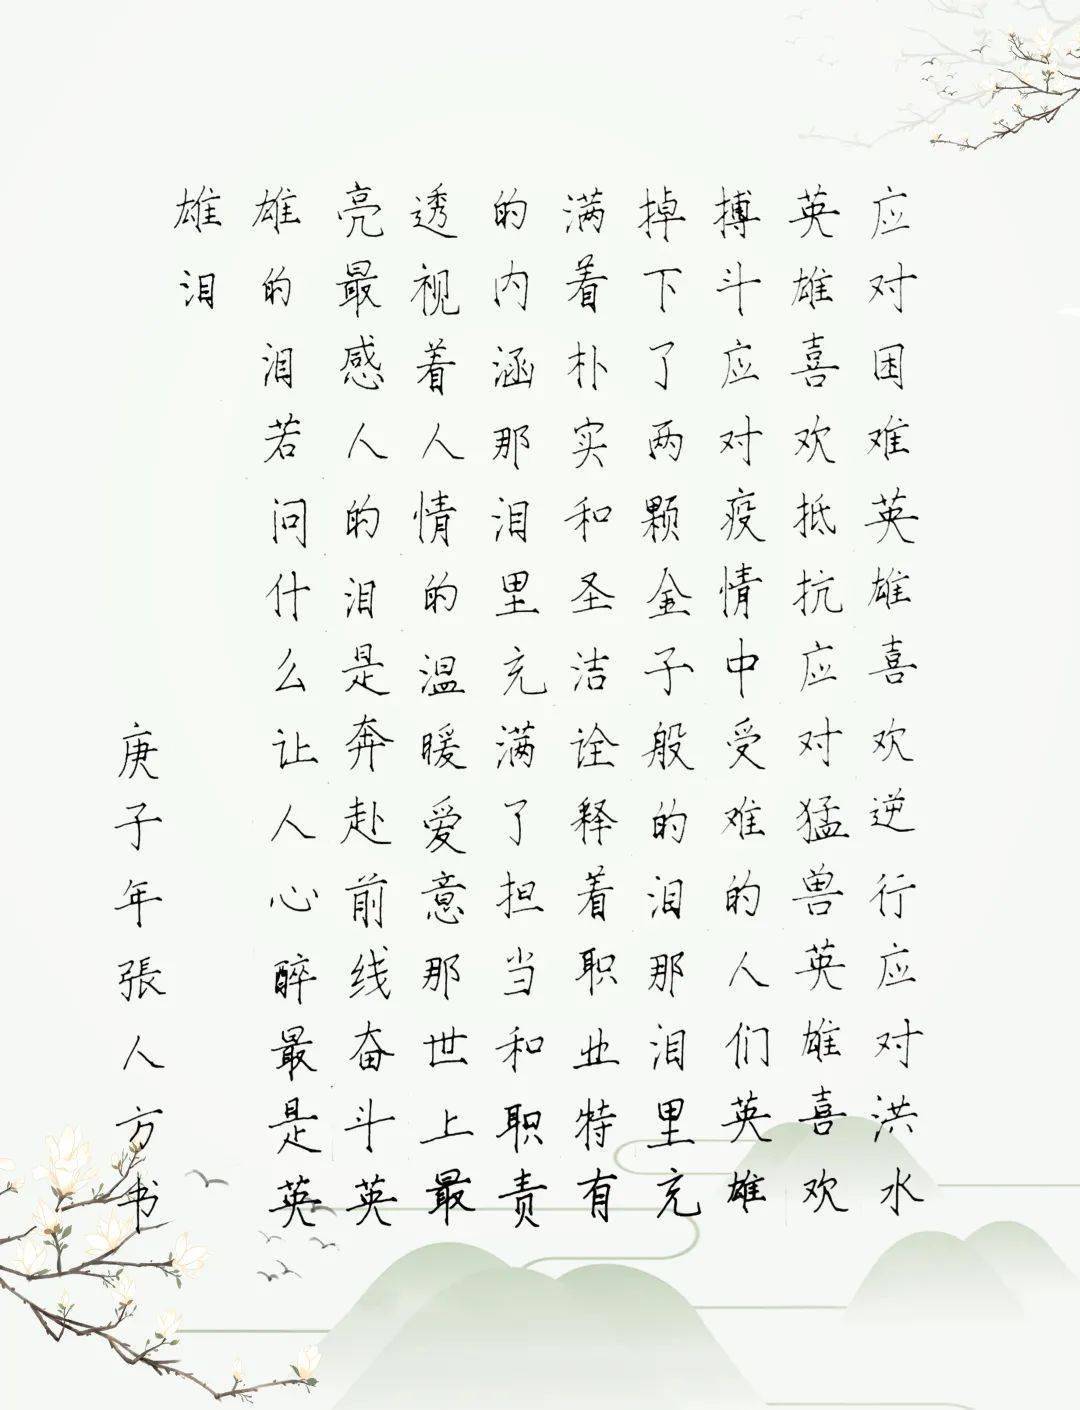 应对困难英雄喜欢逆行应对洪水
英雄喜欢抵抗应对猛兽英雄喜欢
搏斗应对疫情中受难的人们英雄
掉下了两颗金子般的泪那泪里充
满着朴实和圣洁诠释着职业特有
的内涵那泪里充满了担当和职责
透视着人情的温暖爱意那世上最
亮最感人的泪是奔赴前线奋斗英
雄的泪若问什么让人心醉最是英
雄泪
庚子年張人方书